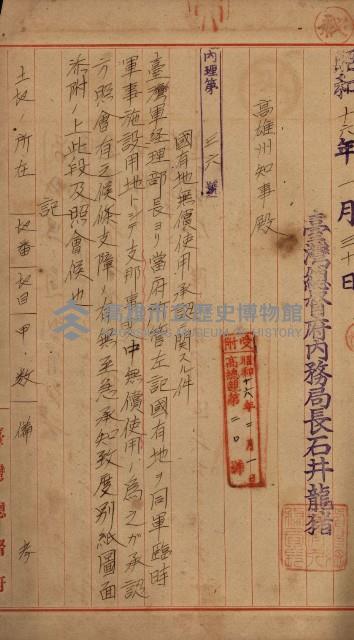 秘
昭和十六年一月三十日
臺灣總督府內務局長石井龍猪
高雄州知事殿
內理第三六號
國有地無償使用承認ニ關スル件
臺灣軍經理部長ヨリ當府所管左記國有地ヲ同軍臨時
軍事施設用地トシテ支那事變中無償使用ノ為之ガ承認
方照會有之候條支障ノ有無至急承知致度別紙圖面
添附ノ上此段及照會候也
記
土地ノ所在 地番 地目 甲數 備考
受附
昭和十六年二月一日
高總須第二〇號
高雄市立歷史博物館
KAOHSIUNG MUSEUM OF HISTORY
臺灣總督府